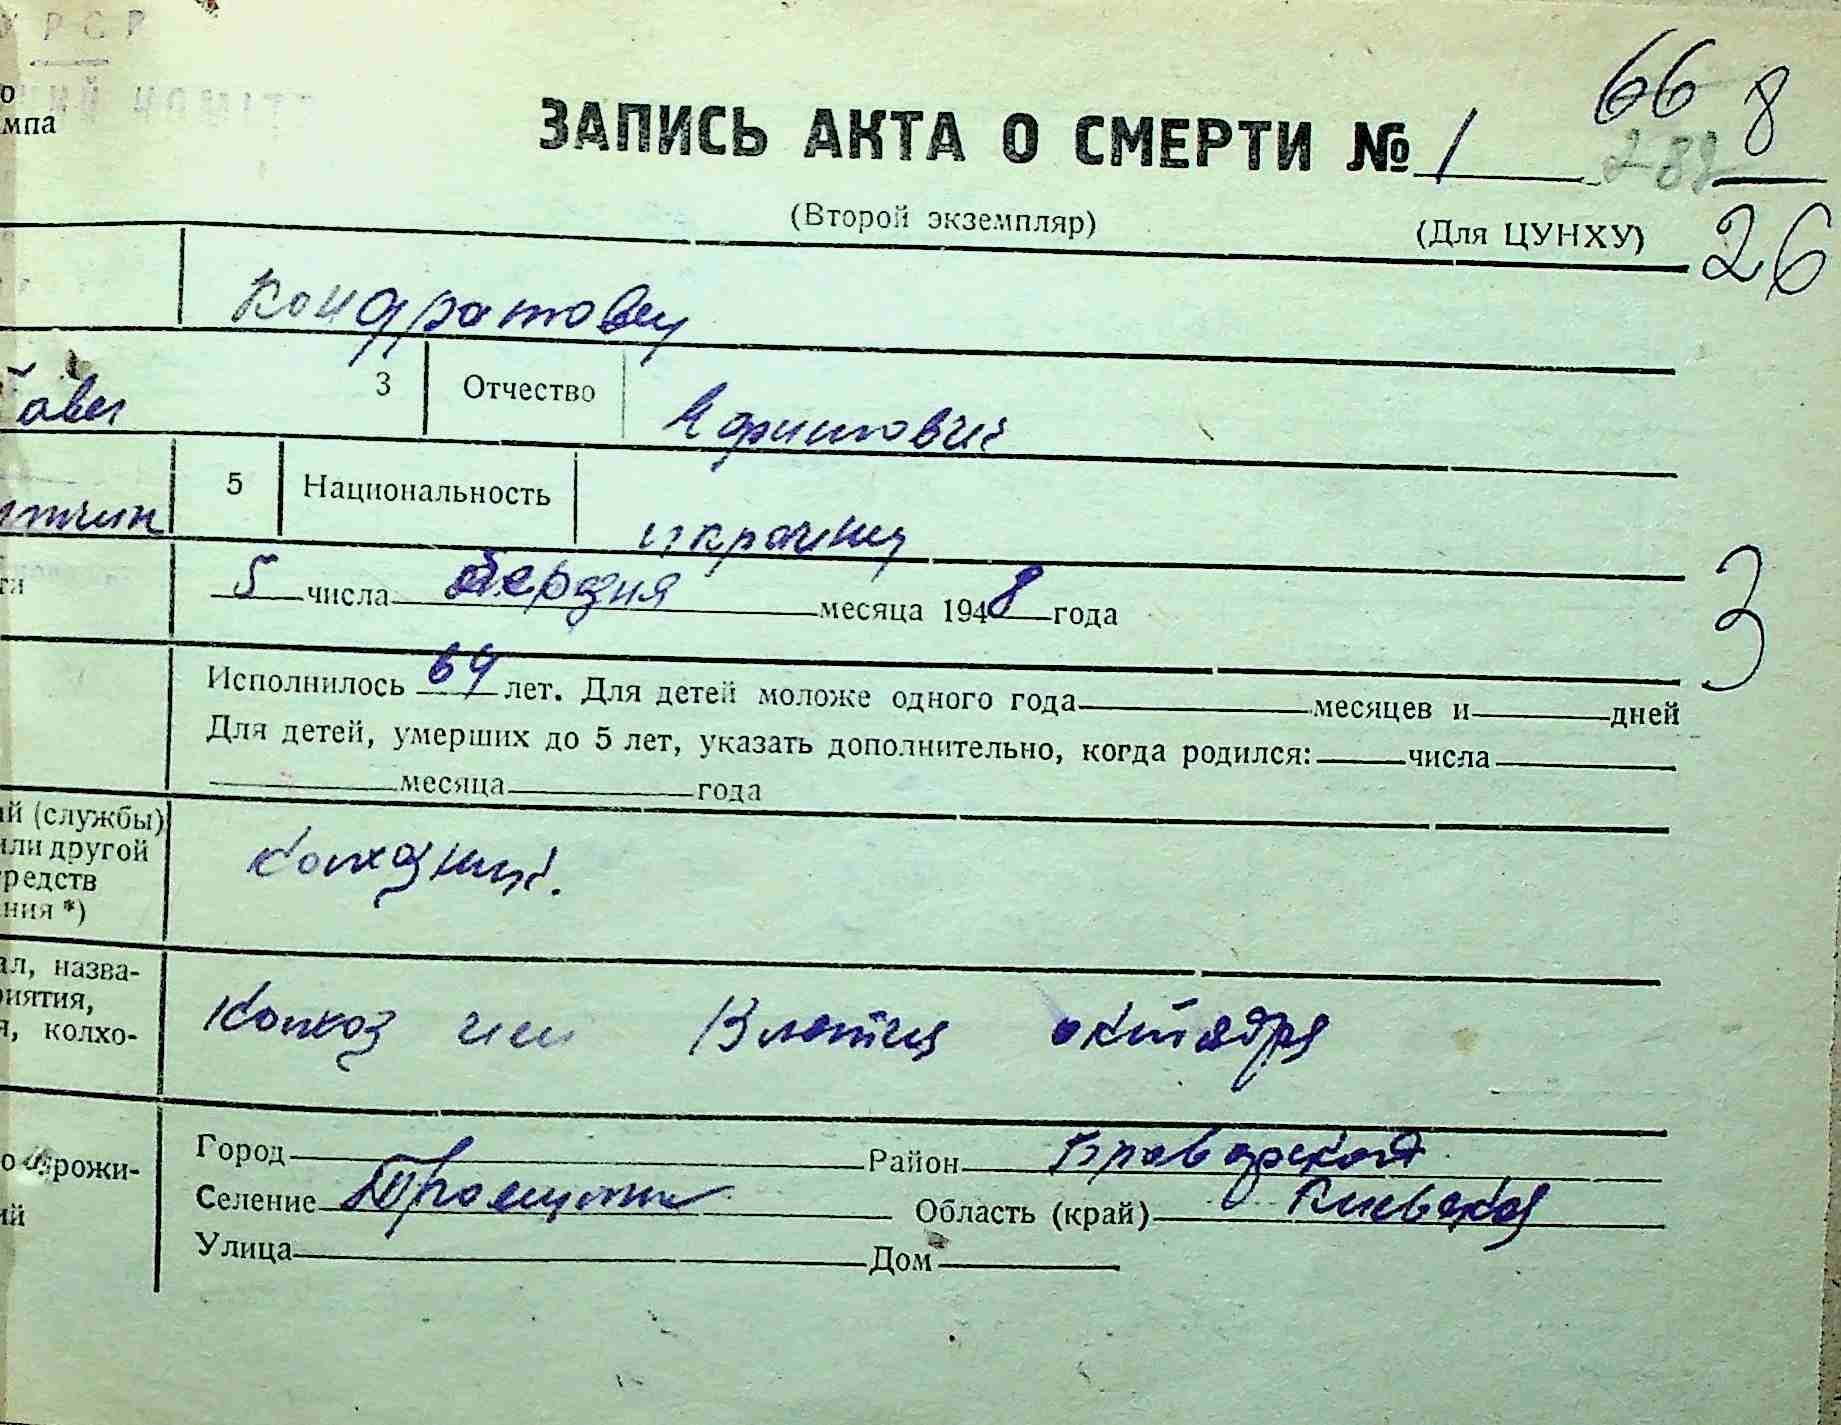 РСР
о
мпа
ЗАПИСЬ АКТА О СМЕРТИ № 1
66 8
26
(Второй экземпляр) (Для ЦУНХУ)
3 Отчество
5 Национальность
3
ти 5 числа березня месяца 1948 года
Исполнилось 64 лет. Для детей моложе одного года месяцев и дней
Для детей, умерших до 5 лет, указать дополнительно, когда родился: числа
месяца года
ий (службы)
или другой
редств
ния *)
колхозник.
ал, назва-
риятия,
я, колхо-
колхоз им октября
о прожи-
ий
Город Район Броварской
Селение Область (край) Киевская
Улица Дом